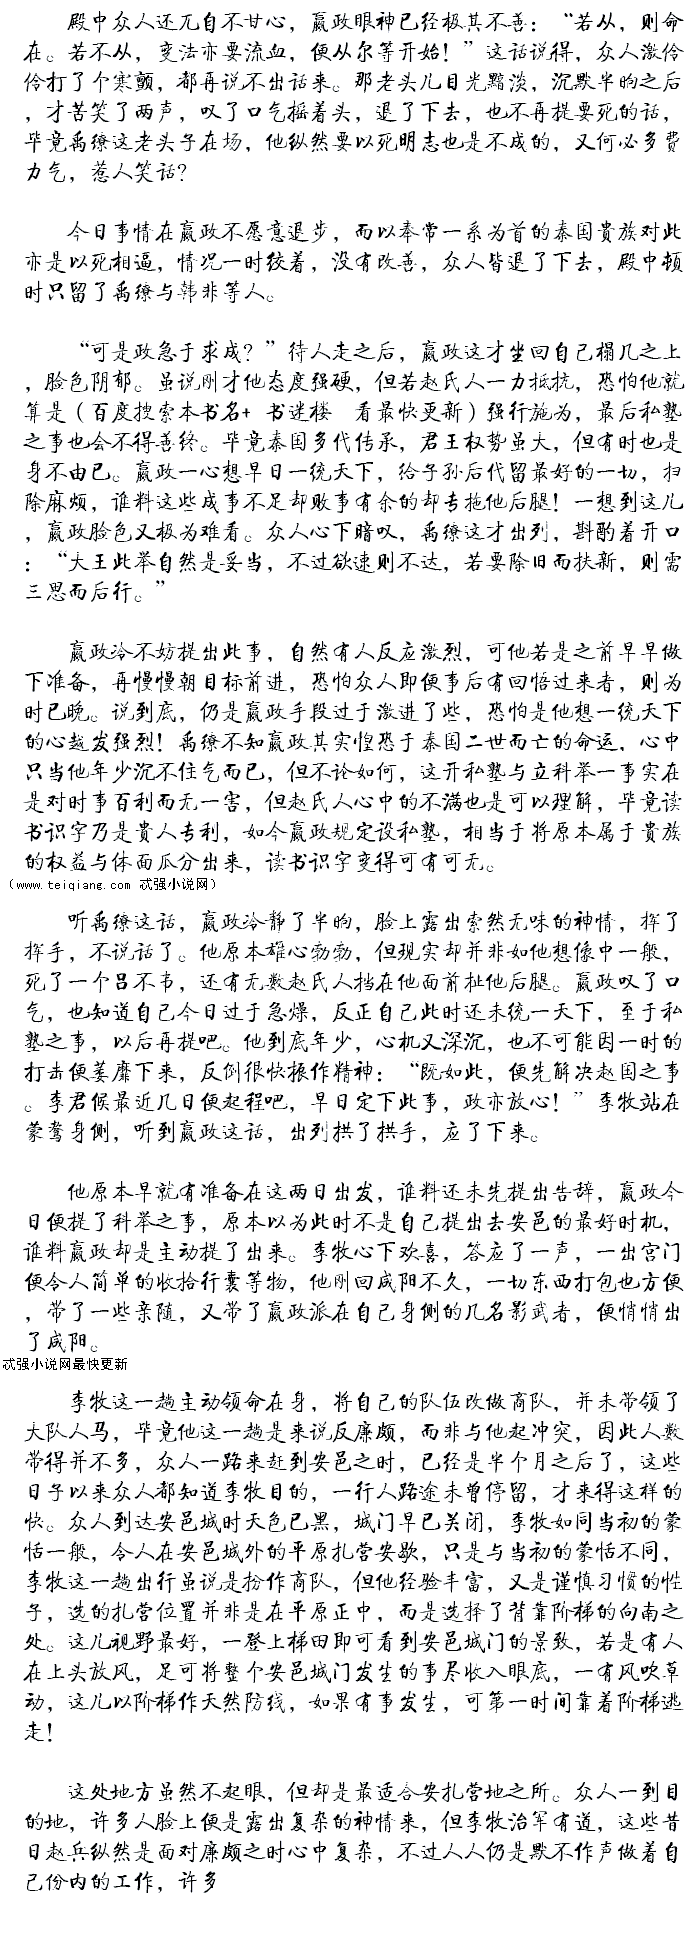 殿中众人还兀自不甘心，嬴政眼神已经极其不善：“若从，则命
在。若不从，变法亦要流血，便从尔等开始！”这话说得，众人激伶
伶打了个寒颤，都再说不出话来。那老头儿目光黯淡，沉默半晌之后
，才苦笑了两声，叹了口气摇着头，退了下去，也不再提要死的话，
毕竟禹缭这老头子在场，他纵然要以死明志也是不成的，又何必多费
力气，惹人笑话？
今日事情在嬴政不愿意退步，而以奉常一系为首的秦国贵族对此
亦是以死相逼，情况一时绞着，没有改善，众人皆退了下去，殿中顿
时只留了禹缭与韩非等人。
“可是政急于求成？”待人走之后，嬴政这才坐回自己榻几之上
，脸色阴郁。虽说刚才他态度强硬，但若赵氏人一力抵抗，恐怕他就
算是（百度搜索本书名+ 书迷楼 看最快更新）强行施为，最后私塾
之事也会不得善终。毕竟秦国多代传承，君王权势虽大，但有时也是
身不由己。嬴政一心想早日一统天下，给子孙后代留最好的一切，扫
除麻烦，谁料这些成事不足却败事有余的却专拖他后腿！一想到这儿
，嬴政脸色又极为难看。众人心下暗叹，禹缭这才出列，斟酌着开口
：“大王此举自然是妥当，不过欲速则不达，若要除旧而扶新，则需
三思而后行。”
嬴政冷不妨提出此事，自然有人反应激烈，可他若是之前早早做
下准备，再慢慢朝目标前进，恐怕众人即便事后有回悟过来者，则为
时已晚。说到底，仍是嬴政手段过于激进了些，恐怕是他想一统天下
的心越发强烈！禹缭不知嬴政其实惶恐于秦国二世而亡的命运，心中
只当他年少沉不住气而已，但不论如何，这开私塾与立科举一事实在
是对时事百利而无一害，但赵氏人心中的不满也是可以理解，毕竟读
书识字乃是贵人专利，如今嬴政规定设私塾，相当于将原本属于贵族
的权益与体面瓜分出来，读书识字变得可有可无。
（www.teiqiang.com 忒强小说网）
听禹缭这话，嬴政冷静了半晌，脸上露出索然无味的神情，挥了
挥手，不说话了。他原本雄心勃勃，但现实却并非如他想像中一般，
死了一个吕不韦，还有无数赵氏人挡在他面前扯他后腿。嬴政叹了口
气，也知道自己今日过于急燥，反正自己此时还未统一天下，至于私
塾之事，以后再提吧。他到底年少，心机又深沉，也不可能因一时的
打击便萎靡下来，反倒很快振作精神：“既如此，便先解决赵国之事
。李君候最近几日便起程吧，早日定下此事，政亦放心！”李牧站在
蒙骜身侧，听到嬴政这话，出列拱了拱手，应了下来。
他原本早就有准备在这两日出发，谁料还未先提出告辞，嬴政今
日便提了科举之事，原本以为此时不是自己提出去安邑的最好时机，
谁料嬴政却是主动提了出来。李牧心下欢喜，答应了一声，一出宫门
便令人简单的收拾行囊等物，他刚回咸阳不久，一切东西打包也方便
，带了一些亲随，又带了嬴政派在自己身侧的几名影武者，便悄悄出
了咸阳。
忒强小说网最快更新
李牧这一趟主动领命在身，将自己的队伍改做商队，并未带领了
大队人马，毕竟他这一趟是来说反廉颇，而非与他起冲突，因此人数
带得并不多，众人一路来赶到安邑之时，已经是半个月之后了，这些
日子以来众人都知道李牧目的，一行人路途未曾停留，才来得这样的
快。众人到达安邑城时天色已黑，城门早已关闭，李牧如同当初的蒙
恬一般，令人在安邑城外的平原扎营安歇，只是与当初的蒙恬不同，
李牧这一趟出行虽说是扮作商队，但他经验丰富，又是谨慎习惯的性
子，选的扎营位置并非是在平原正中，而是选择了背靠阶梯的向南之
处。这儿视野最好，一登上梯田即可看到安邑城门的景致，若是有人
在上头放风，足可将整个安邑城门发生的事尽收入眼底，一有风吹草
动，这儿以阶梯作天然防线，如果有事发生，可第一时间靠着阶梯逃
走！
这处地方虽然不起眼，但却是最适合安扎营地之所。众人一到目
的地，许多人脸上便是露出复杂的神情来，但李牧治军有道，这些昔
日赵兵纵然是面对廉颇之时心中复杂，不过人人仍是默不作声做着自
己份内的工作，许多